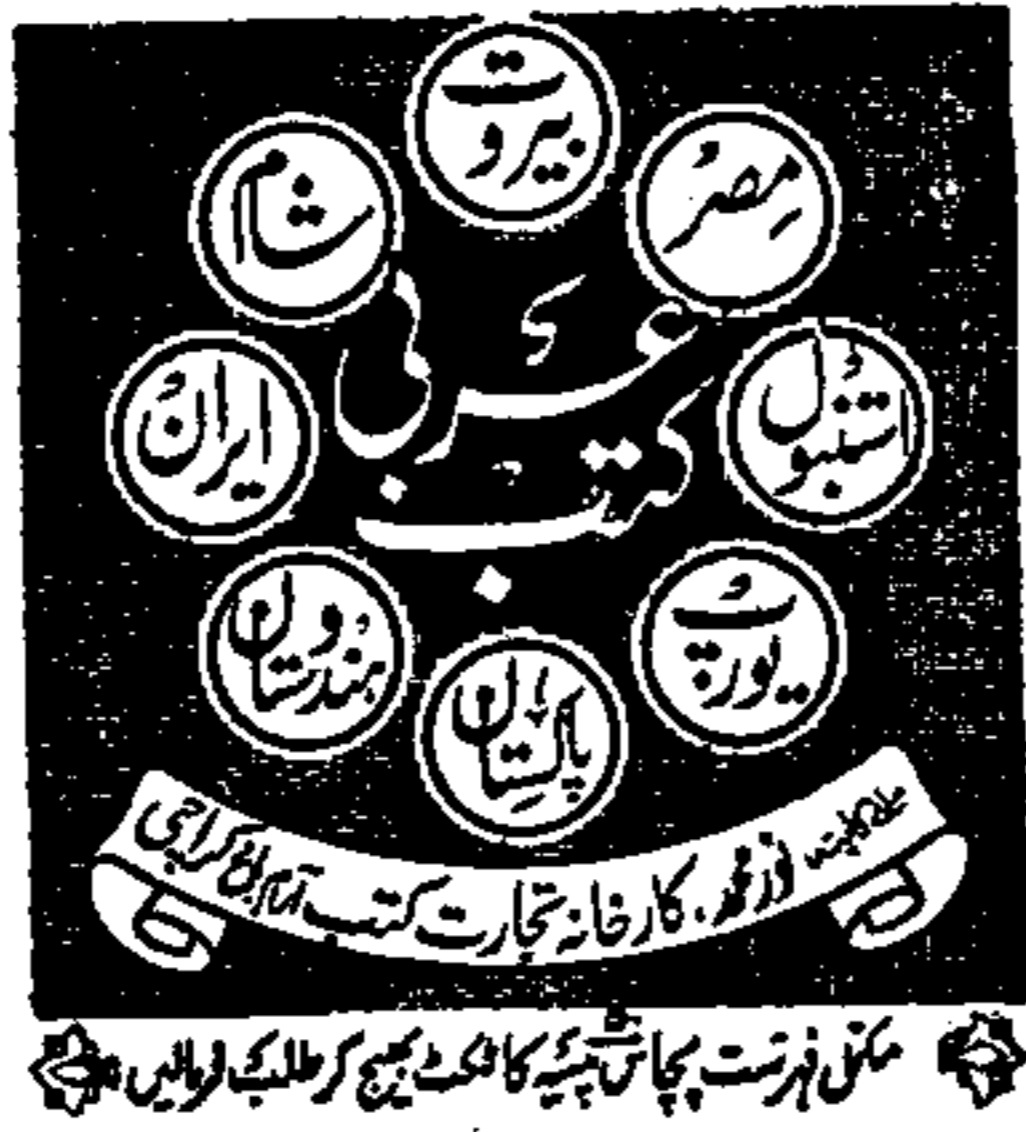 بیروت
مصر
شام
عربی
استنبول
ایران
کتب
یورپ
ہندوستان
پاکستان
ملنے کا پتہ نور محمد، کارخانہ تجارت کتب آرام باغ کراچی
مکمل فہرست پچاس پیسہ کا ٹکٹ بھیج کر طلب فرمائیں